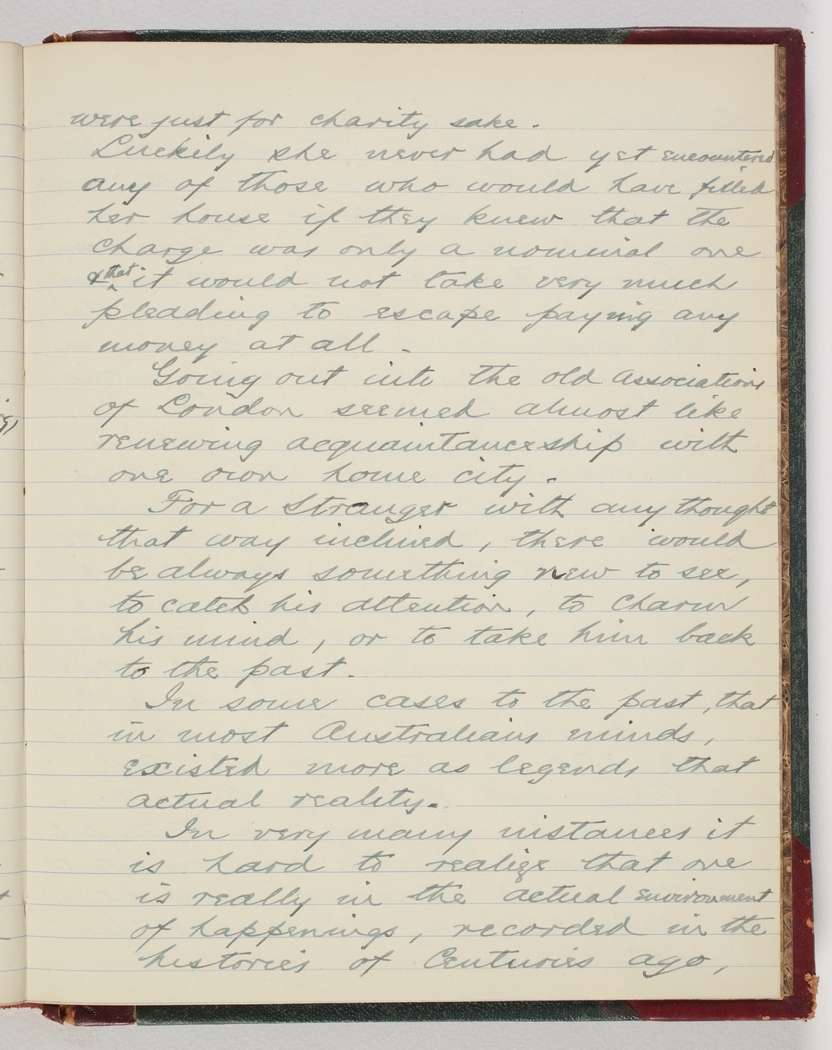 were just for charity sake.
Luckily she never had yet encountered
any of those who would have filled
her house if they knew that the
charge was only a nominal one
& that it would not take very much
pleading to escape paying any
money at all.
Going out into the old associations
of London seemed almost like
renewing acquaintanceship with
one own home city.
For a Stranger with any thought
that way inclined, there would
be always something new to see,
to catch his attention, to charm
his mind, or to take him back
to the past.
In some cases to the past, that
in most Australians minds,
existed more as legends that
actual reality.
In very many instances it
is hard to realize that one
is really in the actual environment
of happenings, recorded in the
histories of Centuries ago,